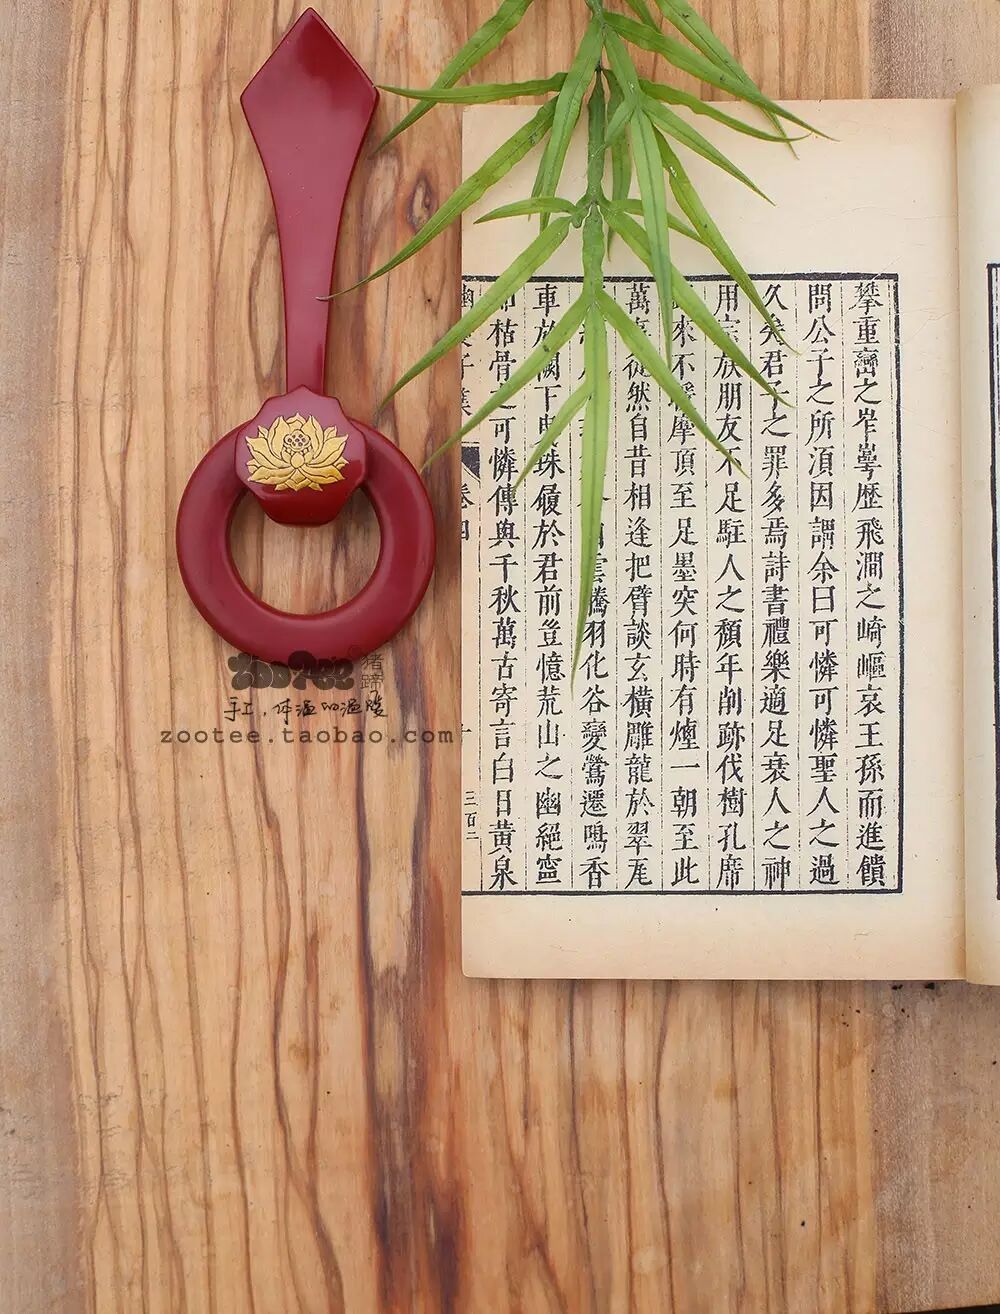 攀重巒之岝崿歷飛澗之崎嶇哀王孫而進饋
問公子之所湏因謂余曰可憐可憐聖人之過
久矣君子之罪多焉詩書禮樂適足衰人之神
用宗族朋友不足駐人之頹年削跡伐樹孔席
來不暖摩頂至足墨突何時有煙一朝至此
萬事徒然自昔相逢把臂談玄橫雕龍於翠尾
雲騰羽化谷變鶯遷鳴香
車於闕下曳珠履於君前豈憶荒山之幽絕寧
知枯骨之可憐傳與千秋萬古寄言白日黃泉
幽憂子集
卷四
三百二
ZooTee 猪蹄
手工，体温的温暖
zootee.taobao.com